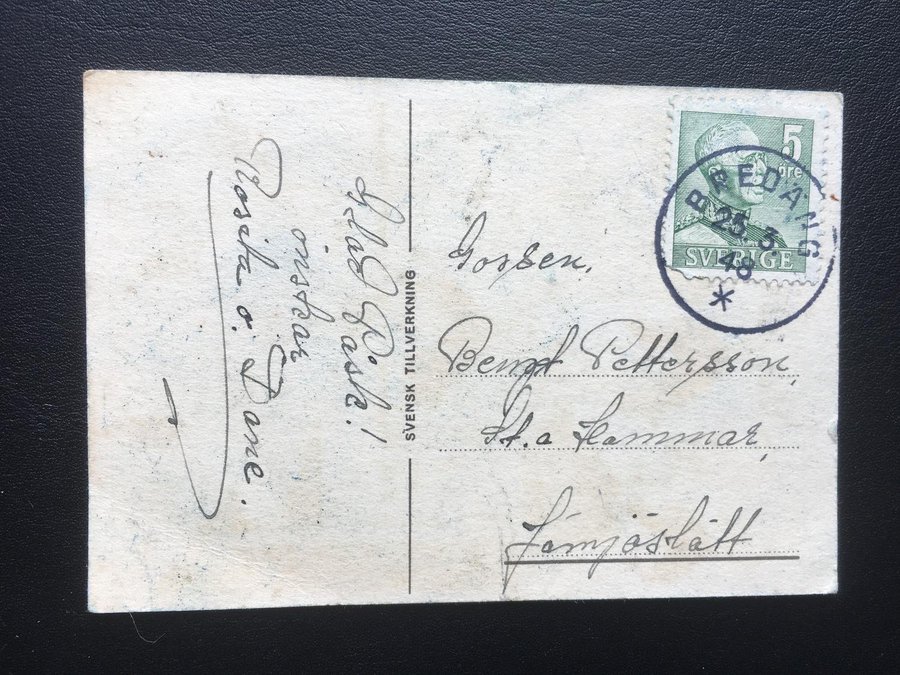 Glad Påsk!
önskar
Rosita o. Tane.
SVENSK TILLVERKNING
5
öre
SVERIGE
BREDÄNG
25 3
48
Gossen,
Bengt Pettersson,
St.a Hammar,
Jämjöslätt